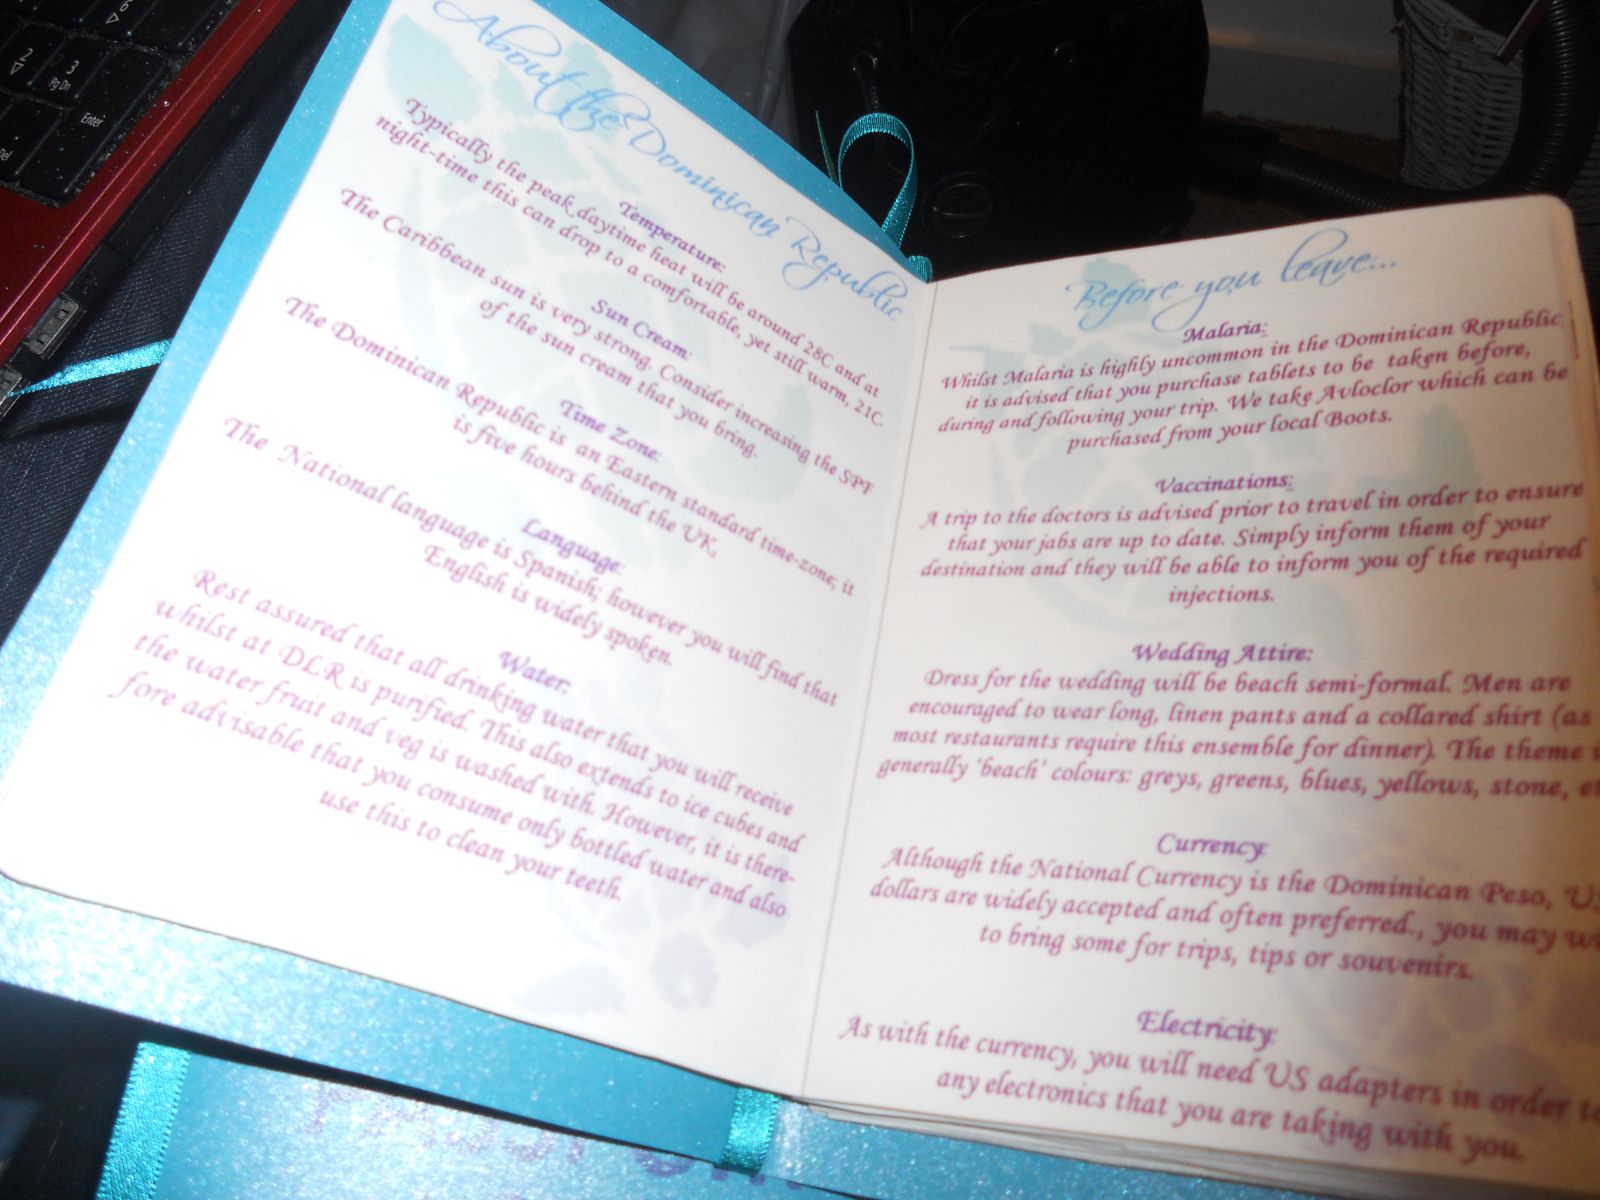 2
3
Pg Dn
Enter
Del
About the Dominican Republic
Temperature:
Typically the peak daytime heat will be around 28C and at
night-time this can drop to a comfortable, yet still warm, 21C.
Sun Cream:
The Caribbean sun is very strong. Consider increasing the SPF
of the sun cream that you bring.
Time Zone:
The Dominican Republic is an Eastern standard time-zone; it
is five hours behind the UK.
Language:
The National language is Spanish; however you will find that
English is widely spoken.
Water:
Rest assured that all drinking water that you will receive
whilst at DLR is purified. This also extends to ice cubes and
the water fruit and veg is washed with. However, it is there-
fore advisable that you consume only bottled water and also
use this to clean your teeth.
Before you leave...
Malaria:
Whilst Malaria is highly uncommon in the Dominican Republic
it is advised that you purchase tablets to be taken before,
during and following your trip. We take Avloclor which can be
purchased from your local Boots.
Vaccinations:
A trip to the doctors is advised prior to travel in order to ensure
that your jabs are up to date. Simply inform them of your
destination and they will be able to inform you of the required
injections.
Wedding Attire:
Dress for the wedding will be beach semi-formal. Men are
encouraged to wear long, linen pants and a collared shirt (as
most restaurants require this ensemble for dinner). The theme
generally 'beach' colours: greys, greens, blues, yellows, stone,
Currency:
Although the National Currency is the Dominican Peso, US
dollars are widely accepted and often preferred., you may
to bring some for trips, tips or souvenirs.
Electricity:
As with the currency, you will need US adapters in order
any electronics that you are taking with you.